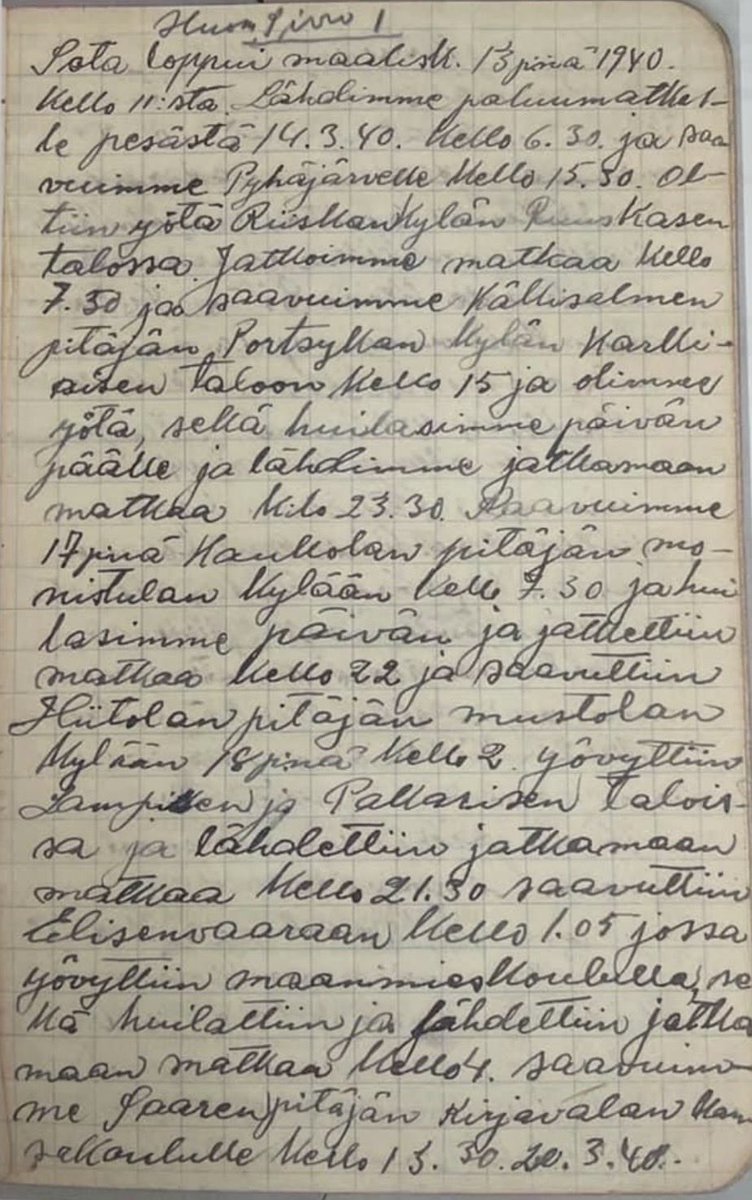 Huom Sivu 1
Sota loppui maalisk. 13 pnä 1940.
Kello 11:sta. Lähdimme paluumatkal-
le pesästä 14.3.40. Kello 6.30. ja saa
vuimme Pyhäjärvelle Kello 15.30. Ol-
tiin yötä Riiskan Kylän Ruuskasen
talossa. Jatkoimme matkaa Kello
7.30 ja saavuimme Käkisalmen
pitäjän Portsykan Kylän Karki-
aisen taloon Kello 15 ja olimme
yötä, sekä huilasimme päivän
päälle ja lähdimme jatkamaan
matkaa Klo 23.30. Saavuimme
17 pnä Kaukolan pitäjän mo-
nistulan Kylään Kello 7.30 ja hui
lasimme päivän ja jatkettiin
matkaa Kello 22 ja saavuttiin
Hiitolan pitäjän mustolan
Kylään 18 pnä Kello 2. yövyttiin
ja Pakarisen talois-
sa ja lähdettiin jatkamaan
matkaa Kello 21.30 saavuttiin
Elisenvaaraan Kello 1.05 jossa
yövyttiin maanmieskoululla, se
kä huilattiin ja lähdettiin jatka
maan matkaa Kello 4. saavuim-
me Saaren pitäjän Kirjavalan Kan
sakoululle Kello 13.30. 20.3.40.